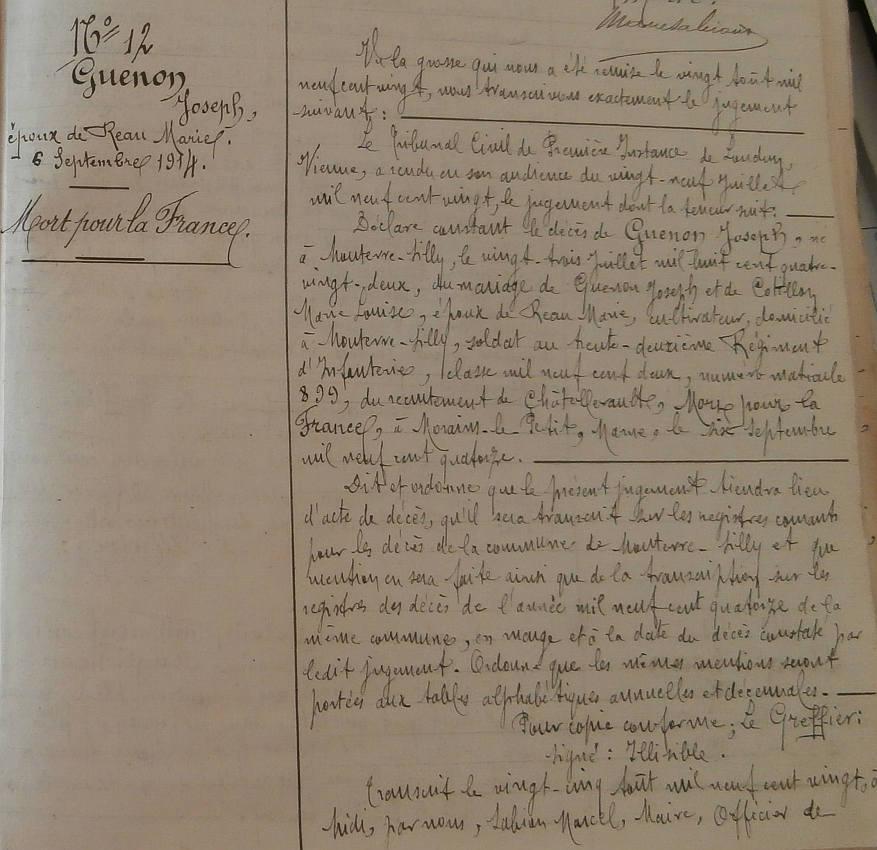 N° 12
Guenon
Joseph,
époux de Reau Marie.
6 Septembre 1914.
Mort pour la France.
Vu la grosse qui nous a été remise le vingt août mil
neuf cent vingt, nous transcrivons exactement le jugement
suivant :
Le Tribunal Civil de Première Instance de Loudun,
Vienne, a rendu en son audience du vingt-neuf Juillet
mil neuf cent vingt, le jugement dont la teneur suit.
Déclare constant le décès de Guenon Joseph, né
à Mouterre-Silly, le vingt-trois Juillet mil huit cent quatre-
vingt-deux, du mariage de Guenon Joseph et de Cotillon
Marie Louise, époux de Reau Marie, cultivateur, domicilié
à Mouterre-Silly, soldat au trente-deuxième Régiment
d'Infanterie, classe mil neuf cent deux, numéro matricule
899, du recrutement de Châtellerault, Mort pour la
France, à Morains-le-Petit, Marne, le six septembre
mil neuf cent quatorze.
Dit et ordonne que le présent jugement tiendra lieu
d'acte de décès, qu'il sera transcrit sur les registres courants
pour les décès de la commune de Mouterre-Silly et que
mention en sera faite ainsi que de la transcription sur les
registres des décès de l'année mil neuf cent quatorze de la
même commune, en marge et à la date du décès constaté par
ledit jugement. Ordonne que les mêmes mentions seront
portées aux tables alphabétiques annuelles et décennales.
Pour copie conforme; Le Greffier:
signé : Illisible.
Transcrit le vingt-cinq Août mil neuf cent vingt, à
midi, par nous, Marcel, Maire, Officier de